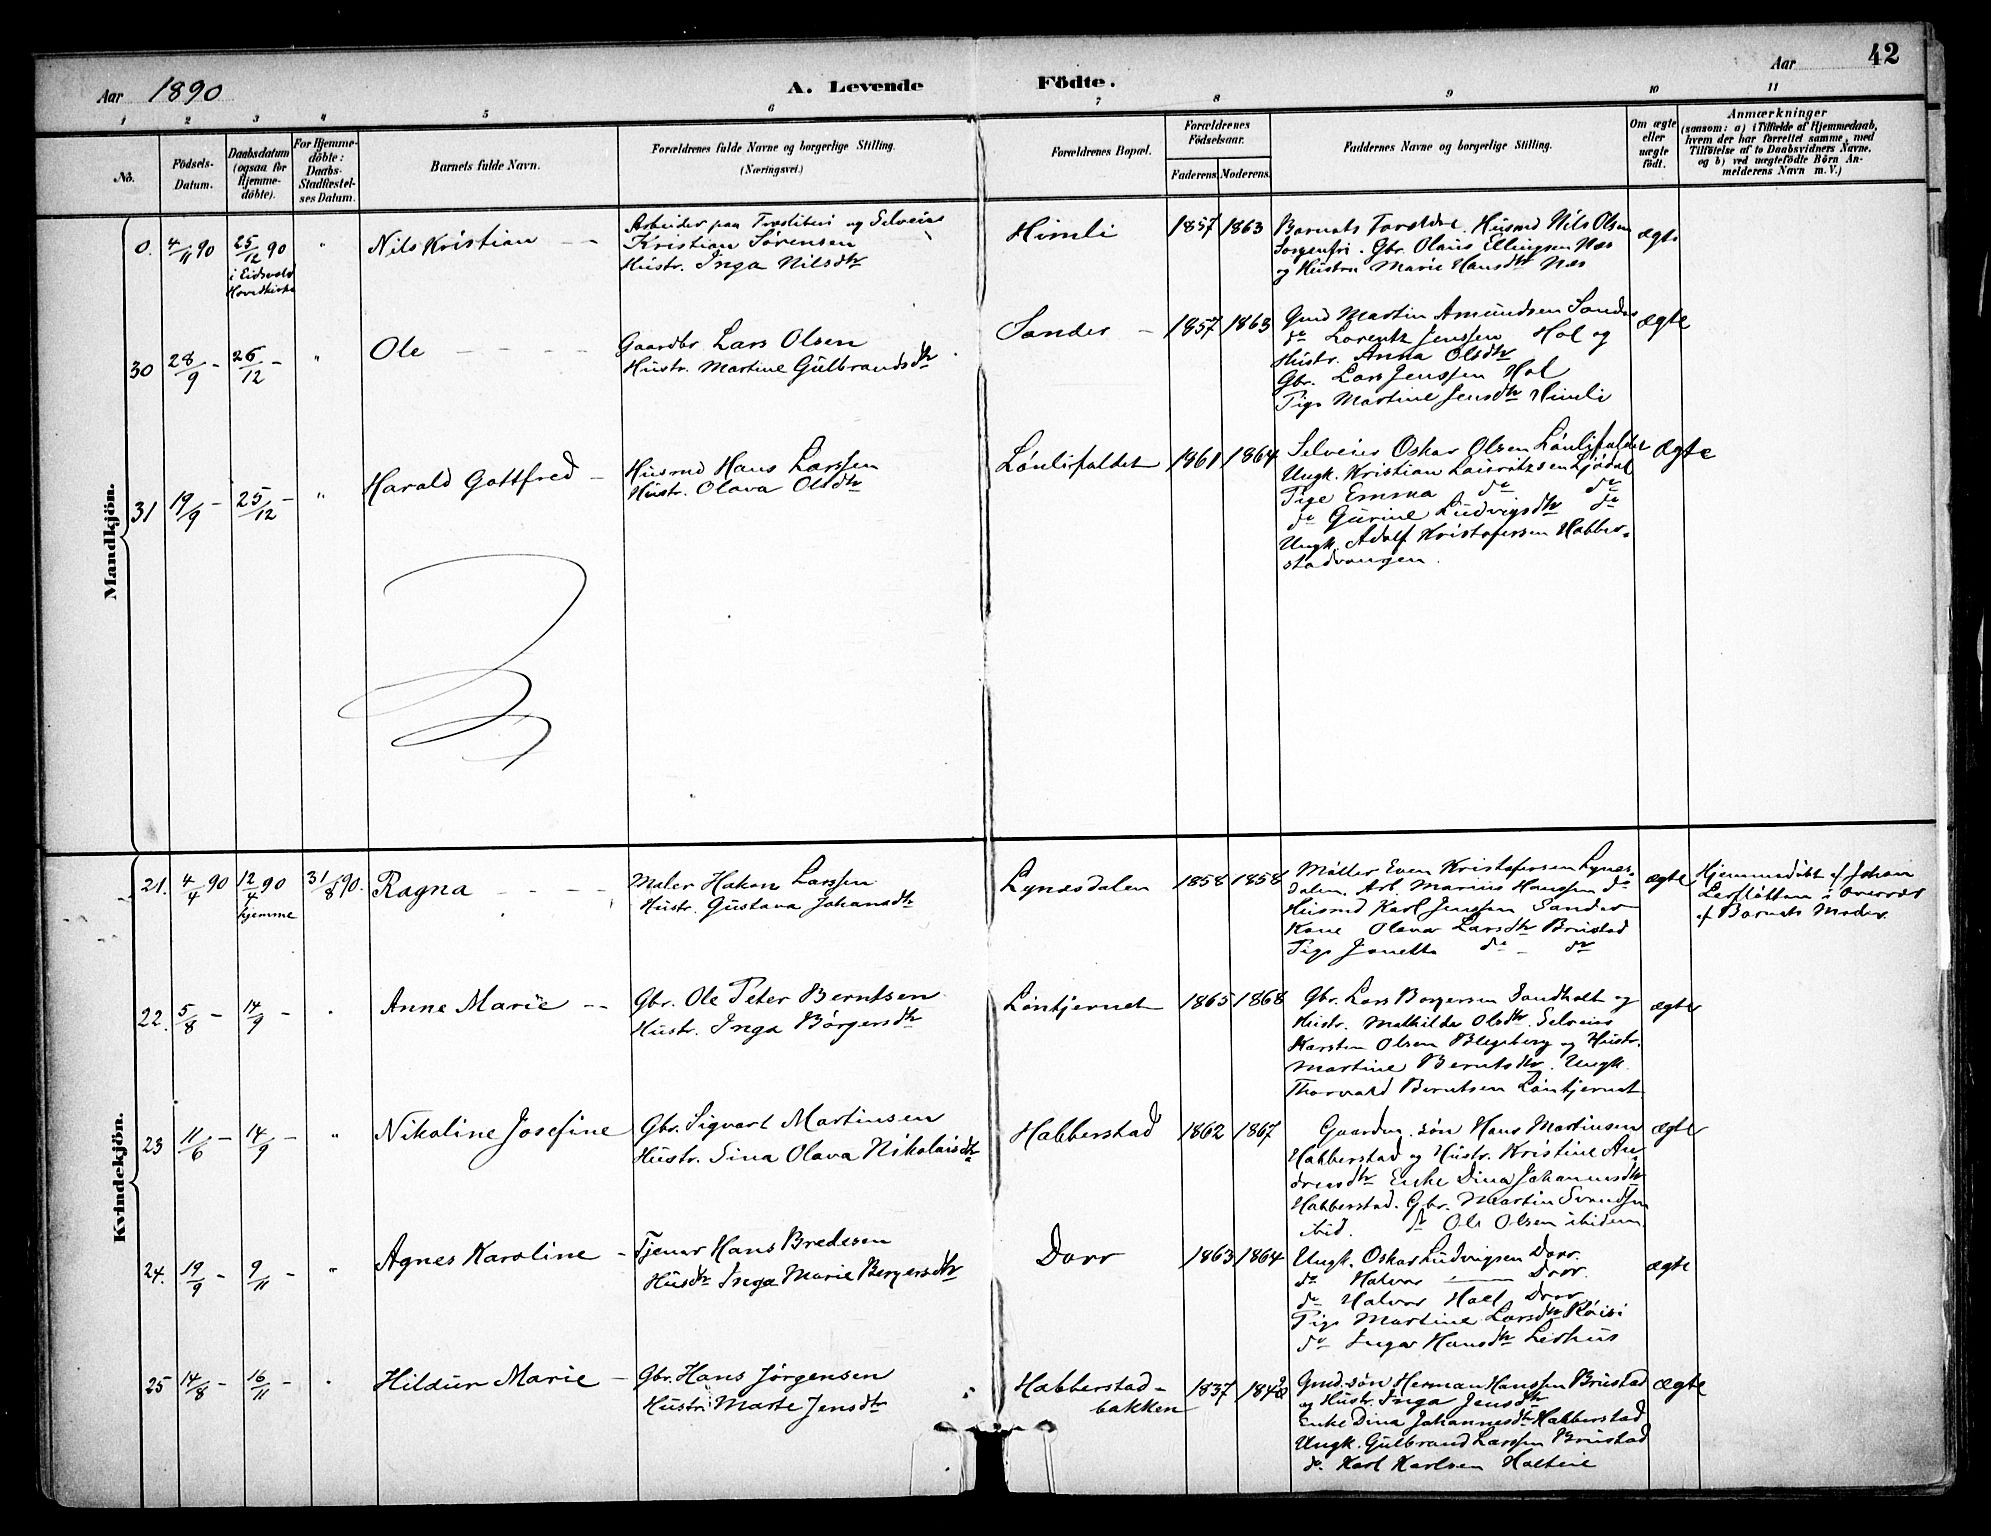 42
Aar 1890
A. Levende Födte.
Aar
1 2 3 4 5 6 7 8 9 10 11
No.
Födsels-Datum.
Daabsdatum (ogsaa för Hjemme-döbte).
For Hjemme-döbte: Daabs-Stadfæstel-ses Datum.
Barnets fulde Navn.
Forældrenes fulde Navne og borgerlige Stilling. (Næringsvei.)
Forældrenes Bopæl.
Forældrenes Födselsaar.
Faderens. Moderens.
Faddernes Navne og borgerlige Stilling.
Om ægte eller uægte födt.
Anmærkninger
(saasom: a) i Tilfælde af Hjemmedaab,
hvem der har forrettet samme, med
Tilföielse af to Daabsvidners Navne,
og b) ved uægtefödte Börn An-
melderens Navn m. V.)
Mandkjön.
0. 4/11 90 25/12 90 i Eidsvold Hovedkirke " Nils Kristian
Arbeider paa og Selveier
Kristian Sørensen
Hustr. Inga Nilsdtr
Himli 1857 1863
Barnets Forældre. Husmd Nils Olsen
Sorgenfri. Gbr. Olaus Ellingsen Næs
og Hustru Marie Hansdtr Næs
ægte
30 28/9 - 26/12 - " Ole
Gaardbr Lars Olsen
Hustr. Martine Gulbrandsdtr
Sander 1857 1863
Gmd Martin Amundsen Sander
do Lorentz Jenssen Hol og
Hustr. Anna Olsdtr
Gbr. Lars Jenssen Hol
Pige Martine Jensdtr Himli
ægte
31 19/9 - 25/12 - " Harald Gottfred
Husmd Hans Larssen
Hustr. Olava Olsdtr
Lönlifaldet 1861 1864
Selveier Oskar Olsen Lönlifaldet
Ungk. Kristian Lauritzsen
Pige Emma do do
do Gurine Ludvigsdtr do
Ungk. Adolf Kristofersen Habber-
stadvangen.
ægte
Kvindekjön.
21. 4/4 90 12/4 90 hjemme 31/8 90. Ragna
Maler Hakon Larssen
Hustr. Gustava Johansdtr
Lynesdalen 1858 1858
Møller Even Kristofersen Lynes-
dalen. Arb. Marius Hanssen do
Husmd Karl Jenssen Sander
Kone Olava Larsdtr Brustad
Pige Janette do - do
ægte
Hjemmedøbt af Johan
i Overvær
af Barnets Moder.
22. 5/8 - 14/9 - Anne Marie
Gbr. Ole Peter Berntsen
Hustr. Inga Börgersdtr
Løntjernet 1865 1868
Gbr. Lars Borgersen Sandholt og
Hustr. Mathilde Olsdtr. Selveier
Karsten Olsen og Hustr.
Martine Berntsdtr. Ungk.
Thorvald Berntsen Løntjernet
ægte
23 11/6 - 14/9 - " Nikoline Josefine
Gbr. Sigvart Martinsen
Hustr. Sina Olava Nikolaisdtr
Habberstad 1862 1867
Gaardm. søn Hans Martinsen
Habberstad og Hustr. Kristine An-
dreasdtr Enke Dina Johannesdtr
Habberstad. Gbr. Martin Svendsen
ibid. do Ole Olsen ibidem
ægte
24. 19/9 - 9/11 - " Agnes Karoline
Tjener Hans Bredesen
Husdtr Inga Marie Bergersdtr
Dorr 1863 1864
Ungk. Oskar Ludvigsen Dorr.
do Halvor Dorr.
do Halvor Hoel Dorr
Pige Martine Larsdtr Röisi
do Inga Hansdtr Lershus
ægte
25 14/8 - 16/11 - Hildur Marie
Gbr. Hans Jørgensen
Hustr. Marte Jensdtr
Habberstad-
bakken 1837
Gmd. søn Herman Hanssen Brustad
og Hustr. Inga Jensdtr
Enke Dina Johannesdtr Habberstad
Ungk. Gulbrand Larssen Brustad
do. Karl Karlsen
ægte